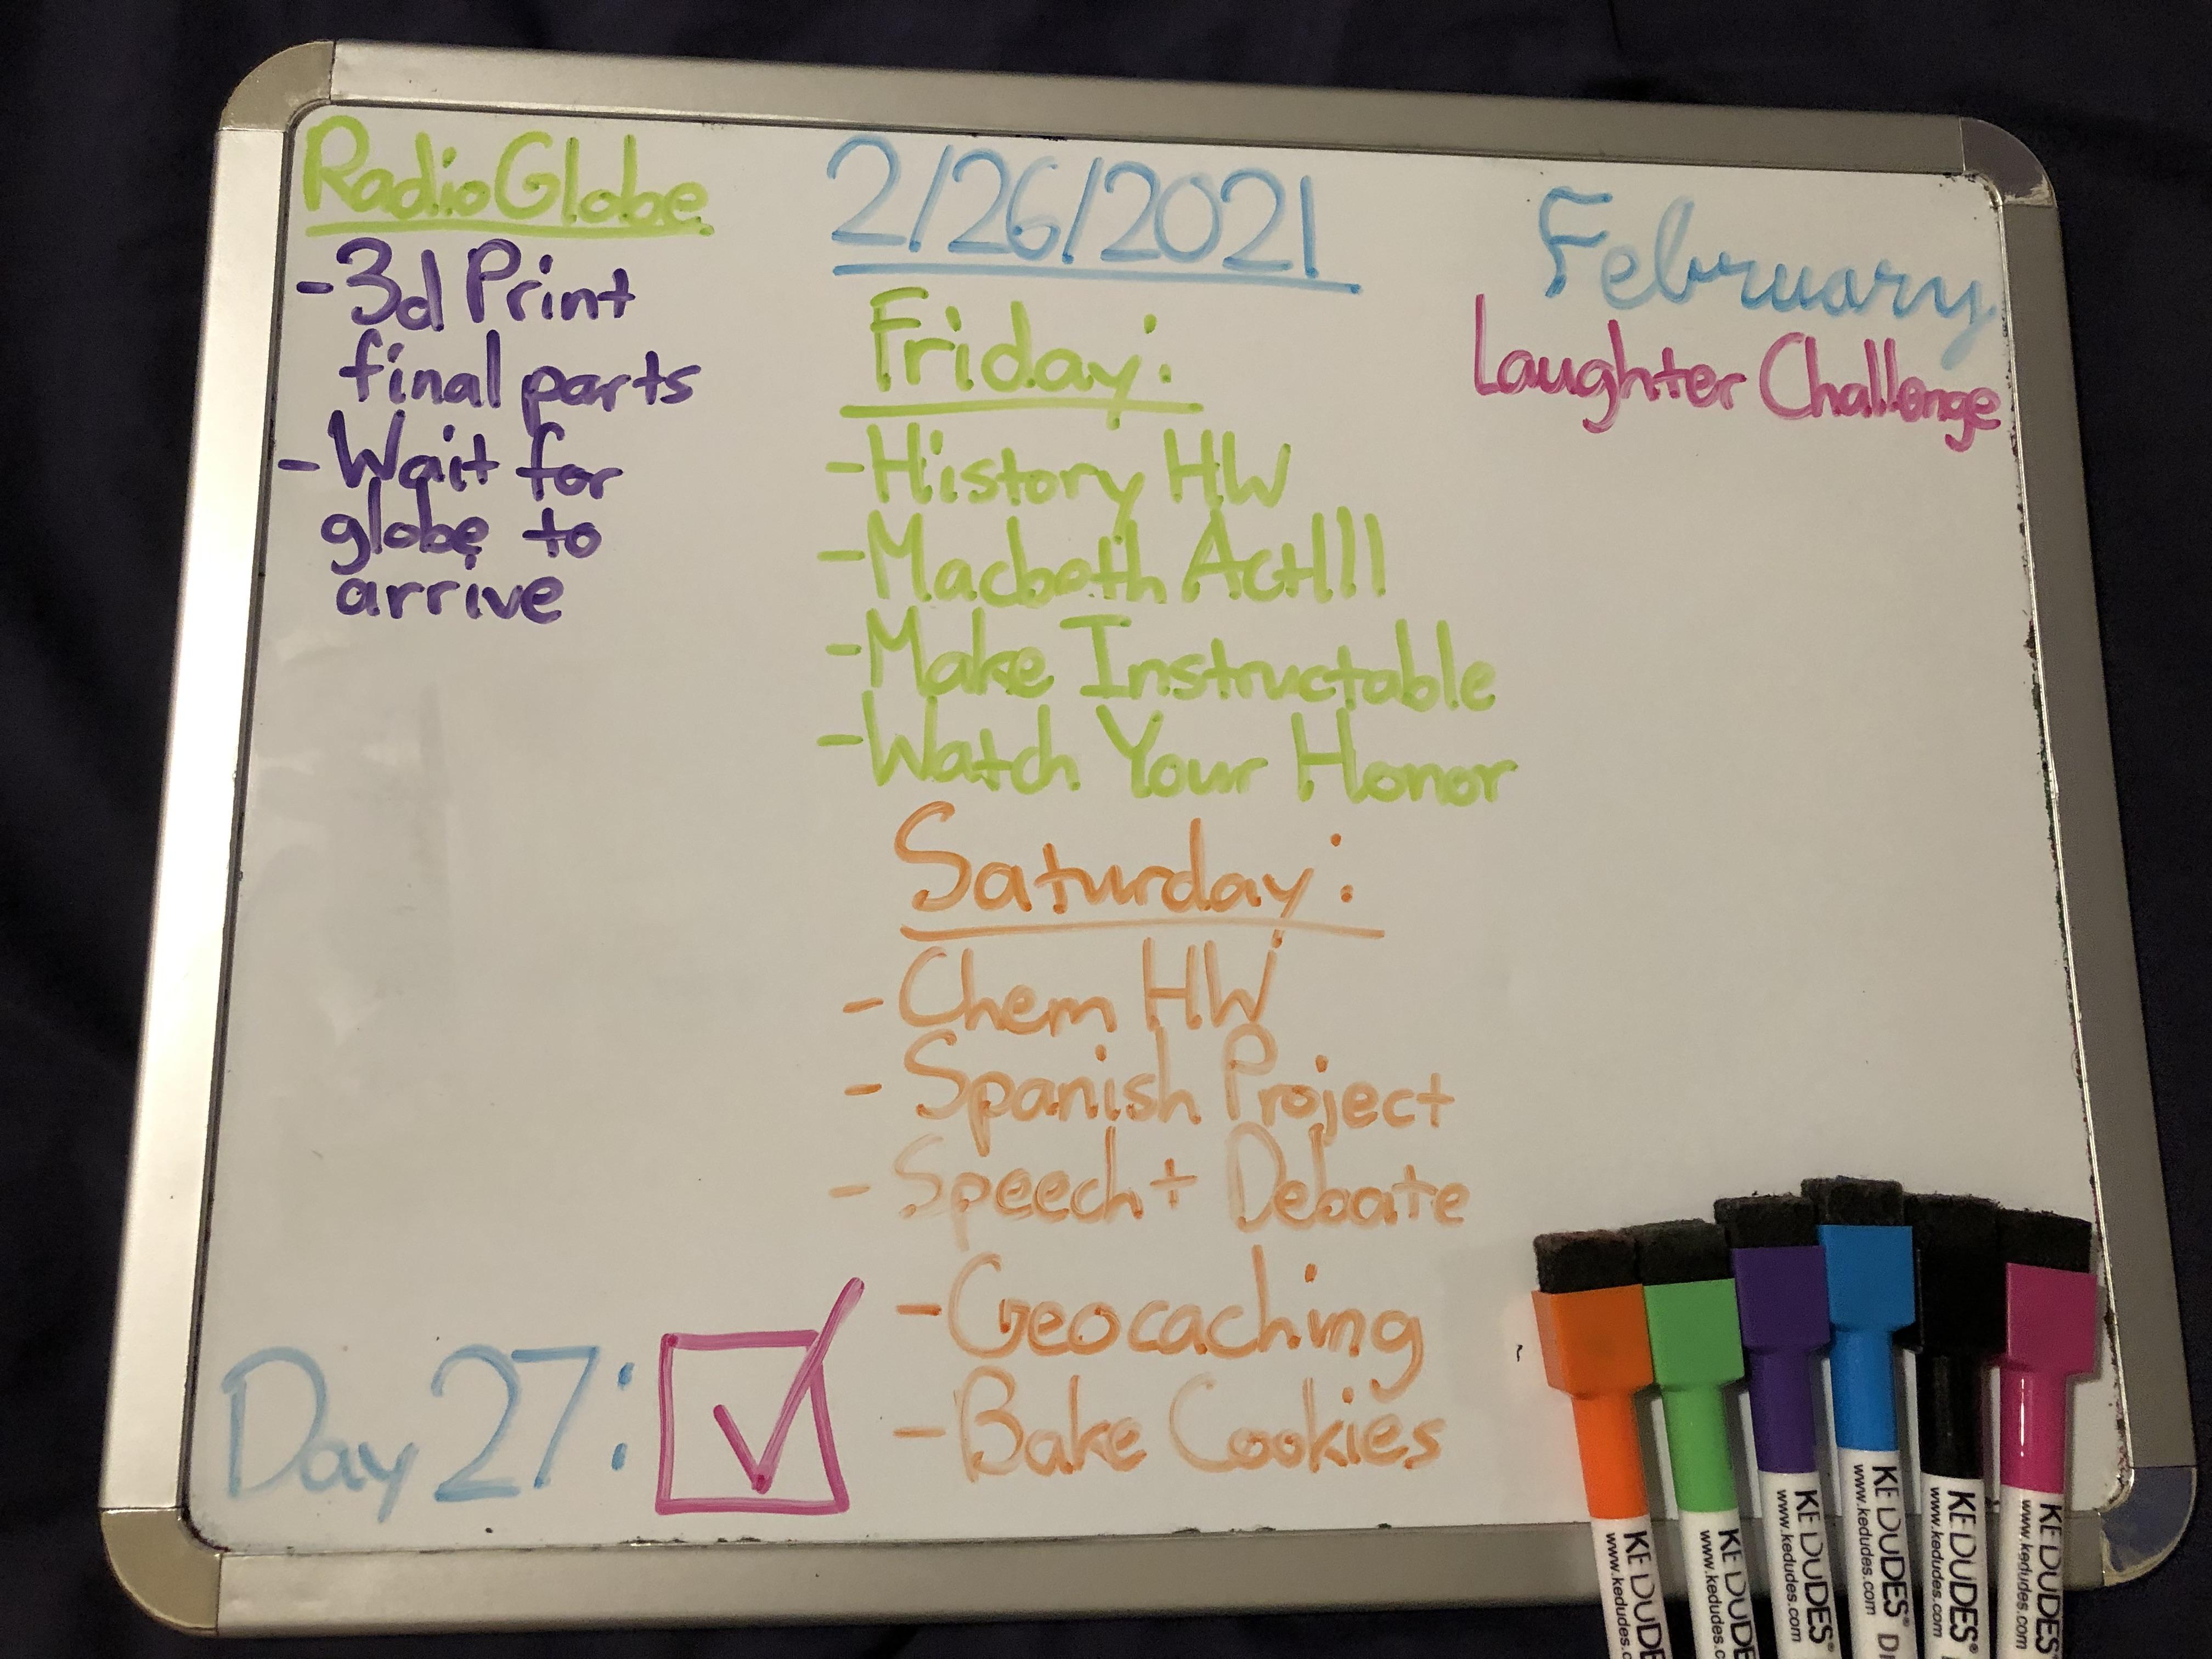 RadioGlobe
-3d Print
final parts
-Wait for
globe to
arrive
2/26/2021
Friday:
-History HW
-Macbeth Act III
-Make Instructable
-Watch Your Honor
Saturday:
- Chem HW
- Spanish Project
- Speech + Debate
-Geocaching
-Bake Cookies
February
Laughter Challenge
Day 27:
KEDUDE
www.kedudes.c
KEDUDE
www.kedudes
KEDUDES®
www.kedudes.com
KEDUDES® D
www.kedudes.com
KEDUDES®
www.kedudes.com
KEDUDES®
www.kedudes.com